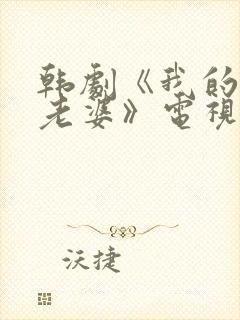 韩劇《我的
老婆》電視
沃捷